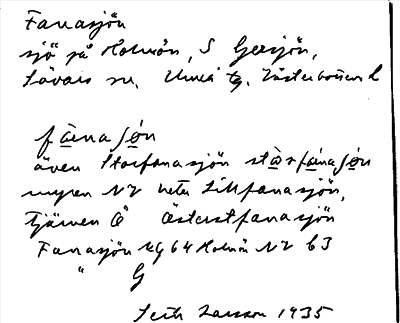 Fanasjön
sjö på Holmön, S Gersjön,
Sävars sn. Umeå tg. Västerbottens l
fànasjón
även Storfanasjön stàrfánasjón
myren NV heter Lillfanasjön,
tjärnen Ö Österstfanasjön
Fanasjön Kg 64 Holmön NV b3
" G
Seth Larsson 1935